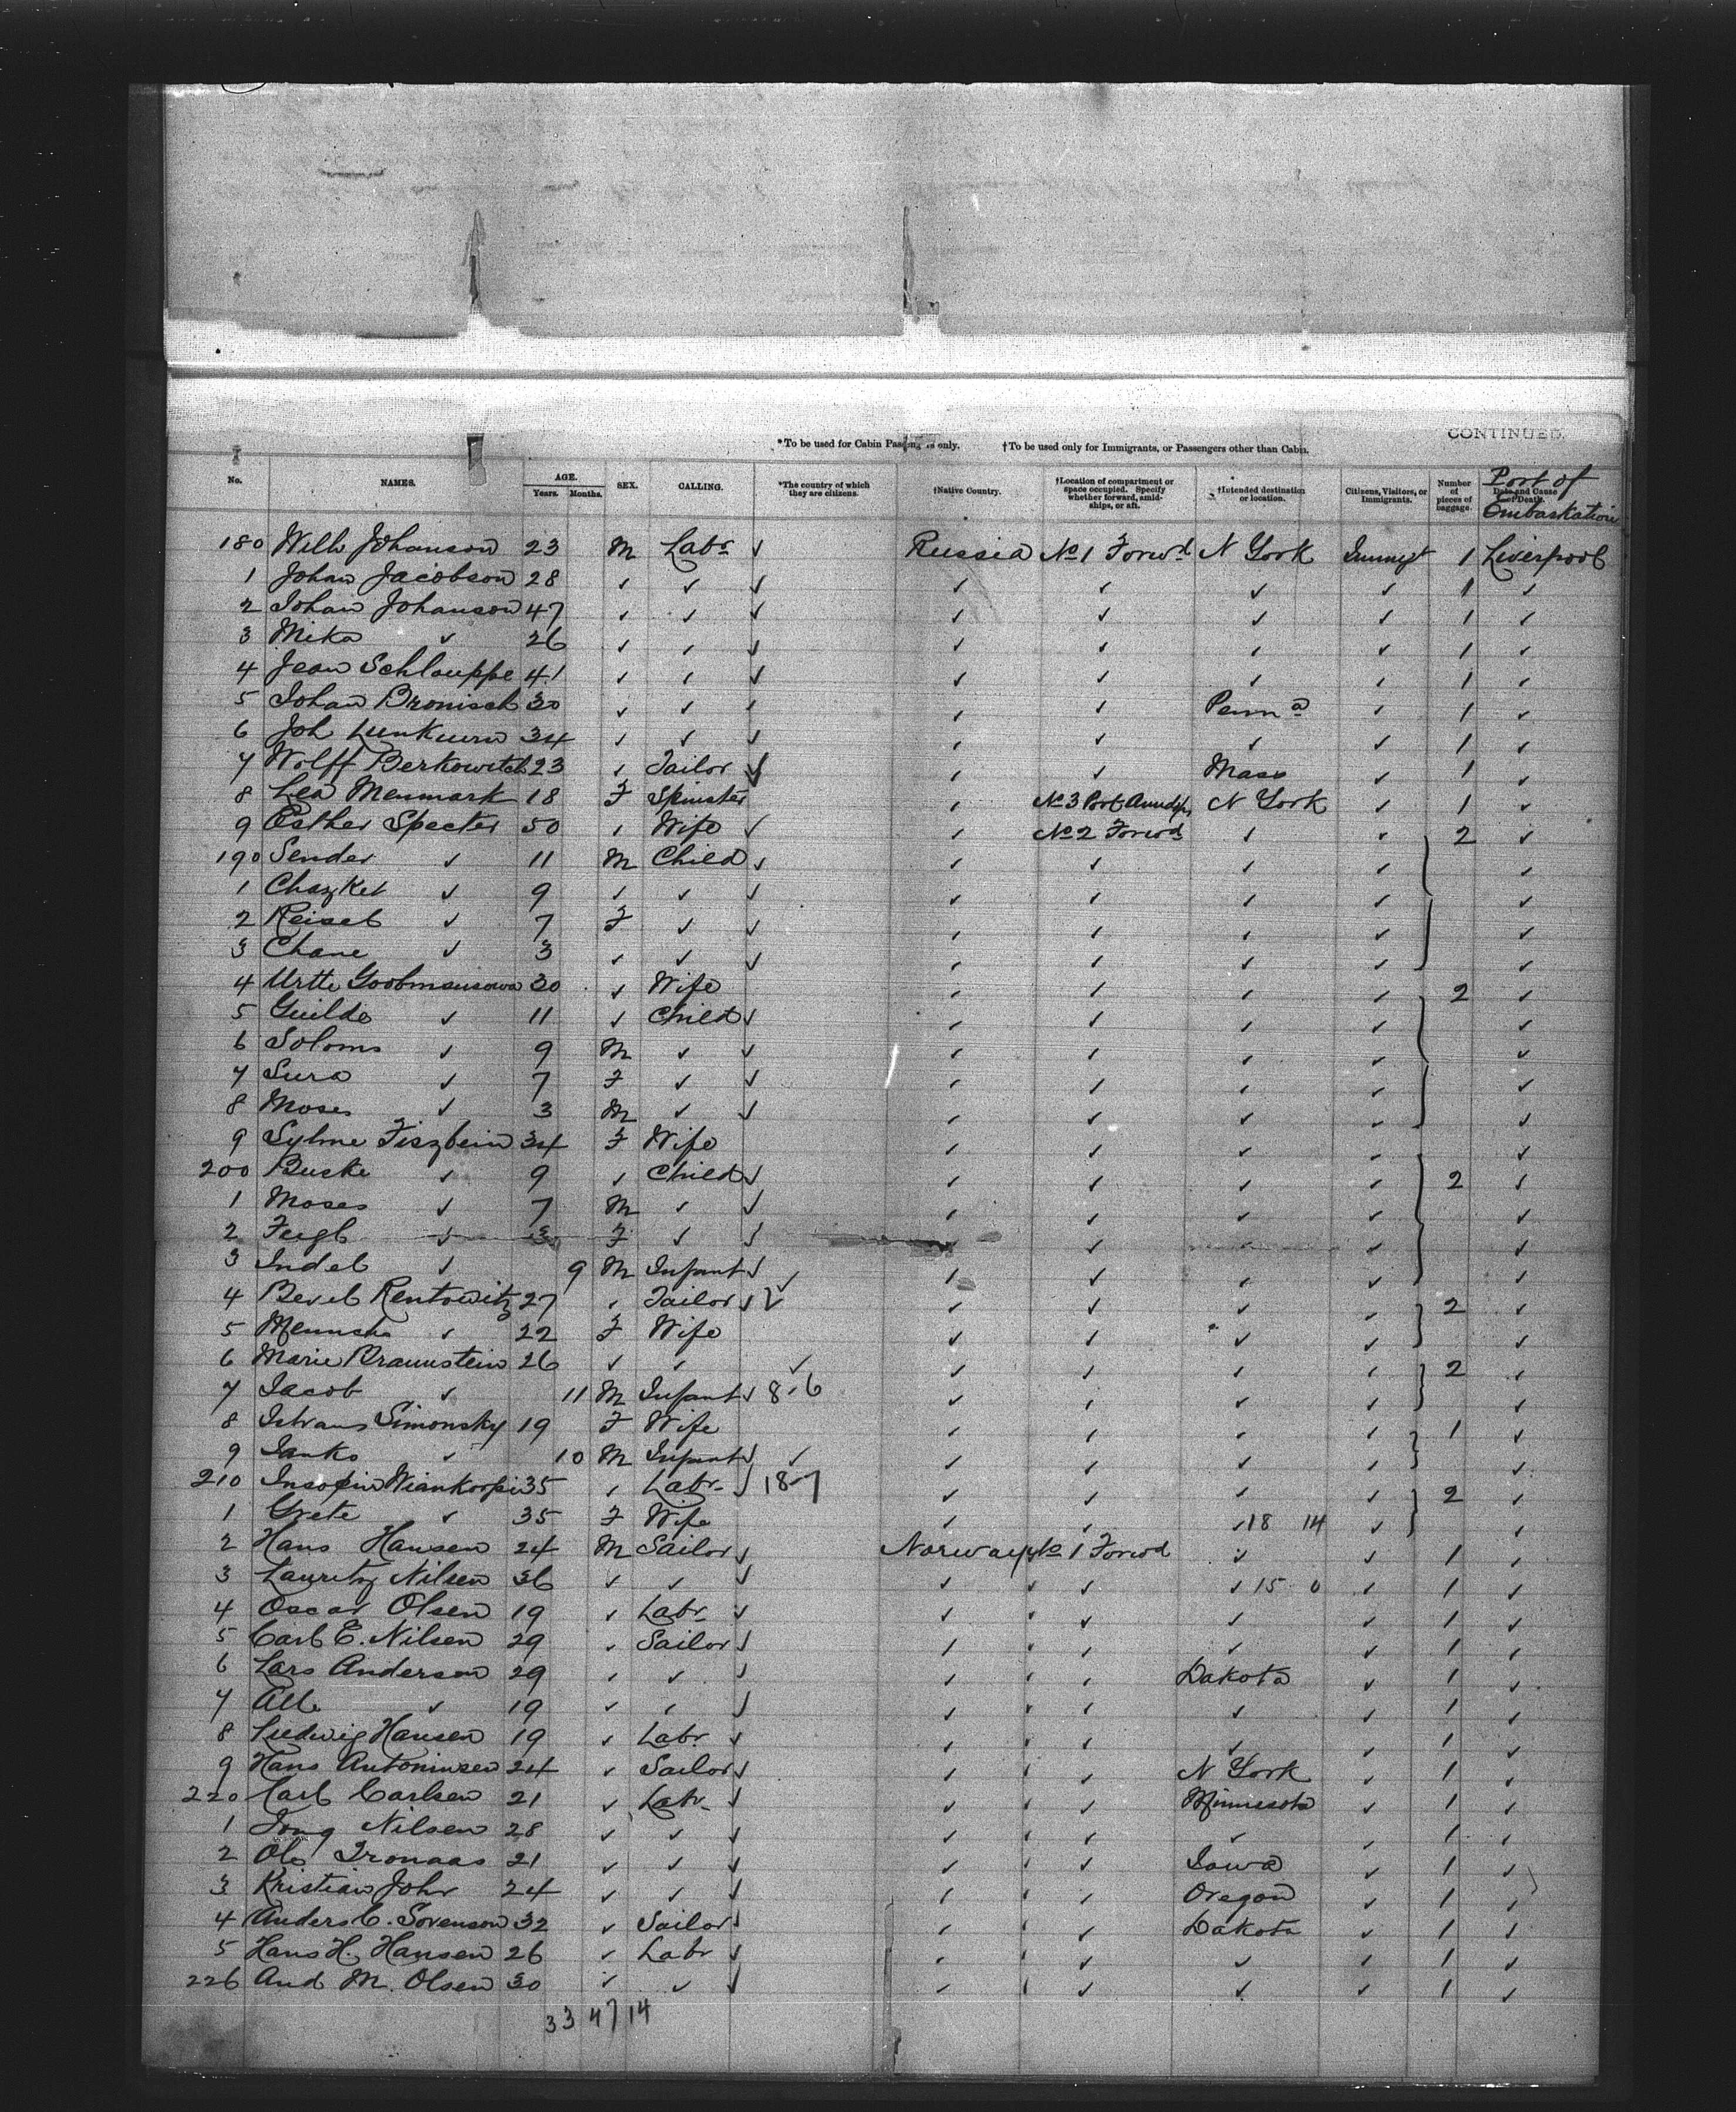 CONTINUED.
*To be used for Cabin Passengers only. †To be used only for Immigrants, or Passengers other than Cabin.
No. NAMES. AGE. Years. Months. SEX. CALLING. *The country of which they are citizens. †Native Country. †Location of compartment or space occupied. Specify whether forward, amidships, or aft. †Intended destination or location. Citizens, Visitors, or Immigrants. Number of pieces of baggage. Date and Cause of Death. Port of Embarkation
180 Will Johanson 23 M Labr ✓ Russia No 1 Forwd N York Immigt 1 Liverpool
1 Johan Jacobson 28 ✓ ✓ ✓ ✓ ✓ ✓ ✓ 1 ✓
2 Johan Johanson 47 ✓ ✓ ✓ ✓ ✓ ✓ ✓ 1 ✓
3 Mika ✓ 26 ✓ ✓ ✓ ✓ ✓ ✓ ✓ 1 ✓
4 Jean Schlauppe 41 ✓ ✓ ✓ ✓ ✓ ✓ ✓ 1 ✓
5 Johan Bronisch 30 ✓ ✓ ✓ ✓ ✓ Penna ✓ 1 ✓
6 Joh 34 ✓ ✓ ✓ ✓ ✓ ✓ ✓ 1 ✓
7 Wolff Berkowitch 23 ✓ Tailor ✓ ✓ ✓ Mass ✓ 1 ✓
8 Lea Menmark 18 F Spinster ✓ No 3 Port N York ✓ 1 ✓
9 Esther Specter 50 ✓ Wife ✓ ✓ No 2 Forwd ✓ ✓ 2 ✓
190 Sender ✓ 11 M Child ✓ ✓ ✓ ✓ ✓ ✓
1 Chazkel ✓ 9 ✓ ✓ ✓ ✓ ✓ ✓ ✓ ✓
2 Reisel ✓ 7 F ✓ ✓ ✓ ✓ ✓ ✓ ✓
3 Chane ✓ 3 ✓ ✓ ✓ ✓ ✓ ✓ ✓ ✓
4 Urtte 30 ✓ Wife ✓ ✓ ✓ ✓ 2 ✓
5 Guilde ✓ 11 ✓ Child ✓ ✓ ✓ ✓ ✓ ✓
6 Soloms ✓ 9 M ✓ ✓ ✓ ✓ ✓ ✓ ✓
7 Sura ✓ 7 F ✓ ✓ ✓ ✓ ✓ ✓ ✓
8 Moses ✓ 3 M ✓ ✓ ✓ ✓ ✓ ✓ ✓
9 Sylme Fiszbein 34 F Wife ✓ ✓ ✓ ✓ ✓
200 Buske ✓ 9 ✓ Child ✓ ✓ ✓ ✓ ✓ 2 ✓
1 Moses ✓ 7 M ✓ ✓ ✓ ✓ ✓ ✓ ✓
2 Feigl ✓ 3 F ✓ ✓ ✓ ✓ ✓ ✓
3 Indel ✓ 9 M Infant ✓ ✓ ✓ ✓ ✓ ✓ ✓
4 Berel Rentowitz 27 ✓ Tailor ✓ ✓ ✓ ✓ ✓ ✓ 2 ✓
5 Menuscha ✓ 22 F Wife ✓ ✓ ✓ ✓ ✓
6 Marie Braunstein 26 ✓ ✓ ✓ ✓ ✓ ✓ ✓ 2 ✓
7 Jacob ✓ 11 M Infant ✓ 8-6 ✓ ✓ ✓ ✓ ✓
8 Simonsky 19 F Wife ✓ ✓ ✓ ✓ 1 ✓
9 Janks ✓ 10 M Infant ✓ ✓ ✓ ✓ ✓ ✓ ✓
210 Wiankorpi 35 ✓ Labr ✓ 18-7 ✓ ✓ ✓ ✓ 2 ✓
1 Grete ✓ 35 F Wife ✓ ✓ ✓ 18 14 ✓ ✓
2 Hans Hansen 24 M Sailor ✓ Norway No 1 Forwd ✓ ✓ 1 ✓
3 Lauritz Nilsen 36 ✓ ✓ ✓ ✓ ✓ ✓ ✓ 15 0 ✓ 1 ✓
4 Oscar Olsen 19 ✓ Labr ✓ ✓ ✓ ✓ ✓ ✓ 1 ✓
5 Carl E. Nilsen 29 ✓ Sailor ✓ ✓ ✓ ✓ ✓ ✓ 1 ✓
6 Lars Anderson 29 ✓ ✓ ✓ ✓ ✓ ✓ Dakota ✓ 1 ✓
7 ✓ 19 ✓ ✓ ✓ ✓ ✓ ✓ ✓ ✓ 1 ✓
8 Ludwig Hansen 19 ✓ Labr ✓ ✓ ✓ ✓ ✓ ✓ 1 ✓
9 Hans Antoninsen 24 ✓ Sailor ✓ ✓ ✓ ✓ N York ✓ 1 ✓
220 Carl Carlsen 21 ✓ Labr ✓ ✓ ✓ ✓ Minnesota ✓ 1 ✓
1 Nilsen 28 ✓ ✓ ✓ ✓ ✓ ✓ ✓ ✓ 1 ✓
2 Ole Tronaas 21 ✓ ✓ ✓ ✓ ✓ ✓ Iowa ✓ 1 ✓
3 Kristian Johr 24 ✓ ✓ ✓ ✓ ✓ ✓ Oregon ✓ 1 ✓
4 Anders C. Sorenson 32 ✓ Sailor ✓ ✓ ✓ ✓ Dakota ✓ 1 ✓
5 Hans H. Hansen 26 ✓ Labr ✓ ✓ ✓ ✓ ✓ ✓ 1 ✓
226 And M. Olsen 30 ✓ ✓ ✓ ✓ ✓ ✓ ✓ ✓ 1 ✓
33 47 14